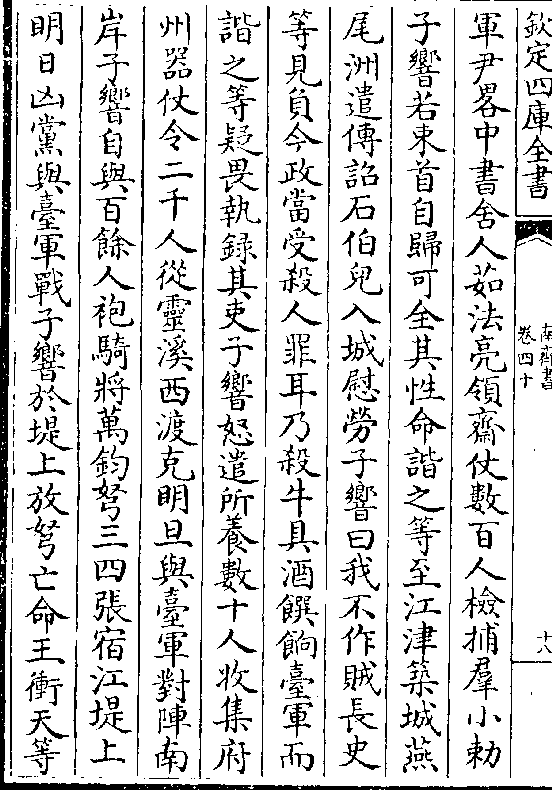 欽定四庫全書
南齊書
卷四十
十八
軍尹畧中書舍人茹法亮領齋仗數百人檢捕羣小勅
子響若束首自歸可全其性命諧之等至江津築城燕
尾洲遣傳詔石伯兒入城慰勞子響曰我不作賊長史
等見負今政當受殺人罪耳乃殺牛具酒饌餉臺軍而
諧之等疑畏執録其吏子響怒遣所養數十人收集府
州器仗令二千人從靈溪西渡克明旦與臺軍對陣南
岸子響自與百餘人袍騎將萬鈞弩三四張宿江堤上
明日凶黨與臺軍戰子響於堤上放弩亡命王衝天等